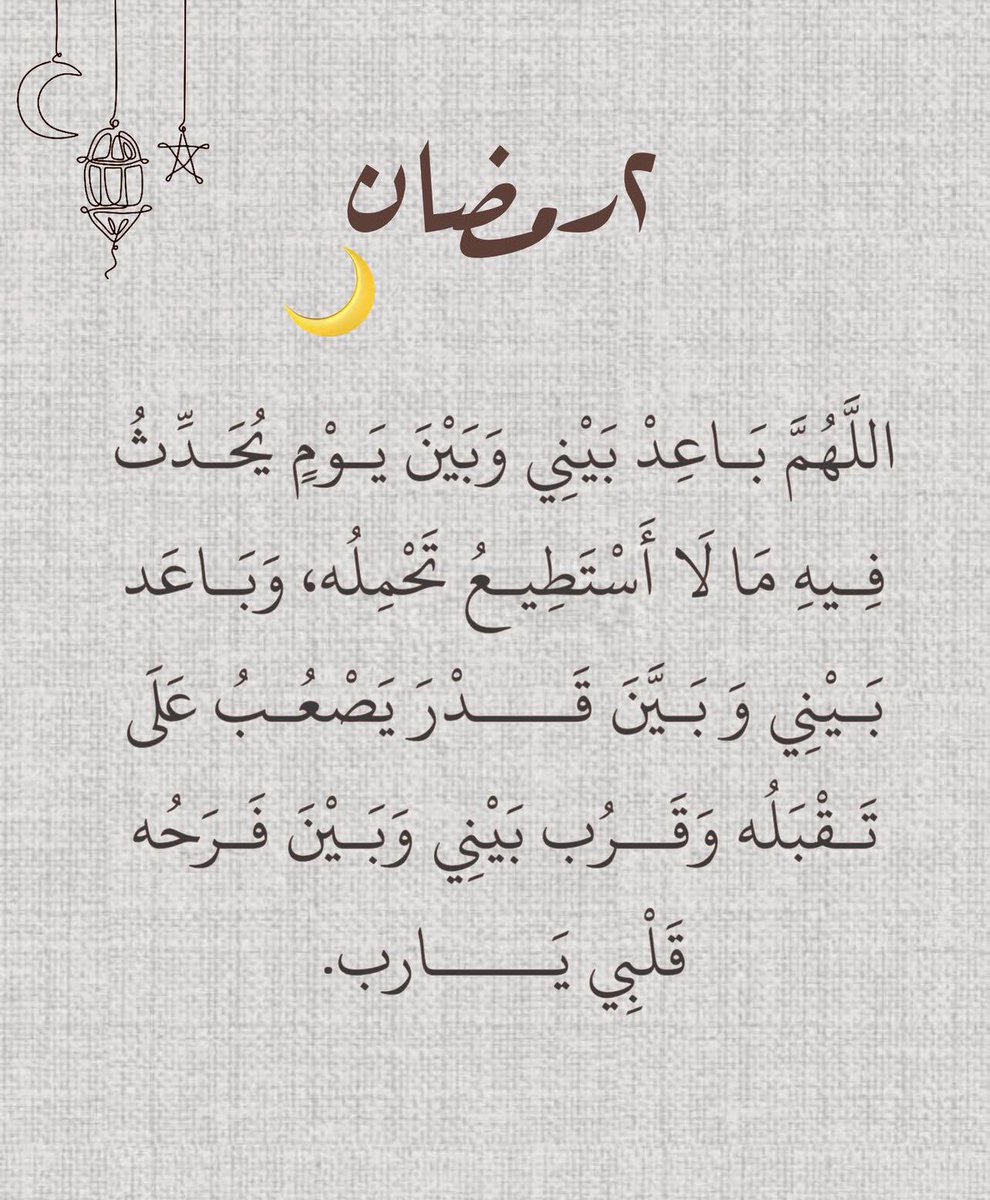 ٢رمضان
اللَّهُمَّ بَـاعِدْ بَيْنِي وَبَيْنَ يَـوْمٍ يُحَـدِّثُ
فِـيهِ مَا لَا أَسْتَطِيـعُ تَحْمِلُه، وَبَـاعَد
بَـيْنِي وَ بَـيَّنَ قَـــدْرَ يَصْعُـبُ عَلَى
تَـقْبَلُه وَقَـرُب بَيْنِي وَبَـيْنَ فَـرَحُه
قَلْبِي يَـــارب.